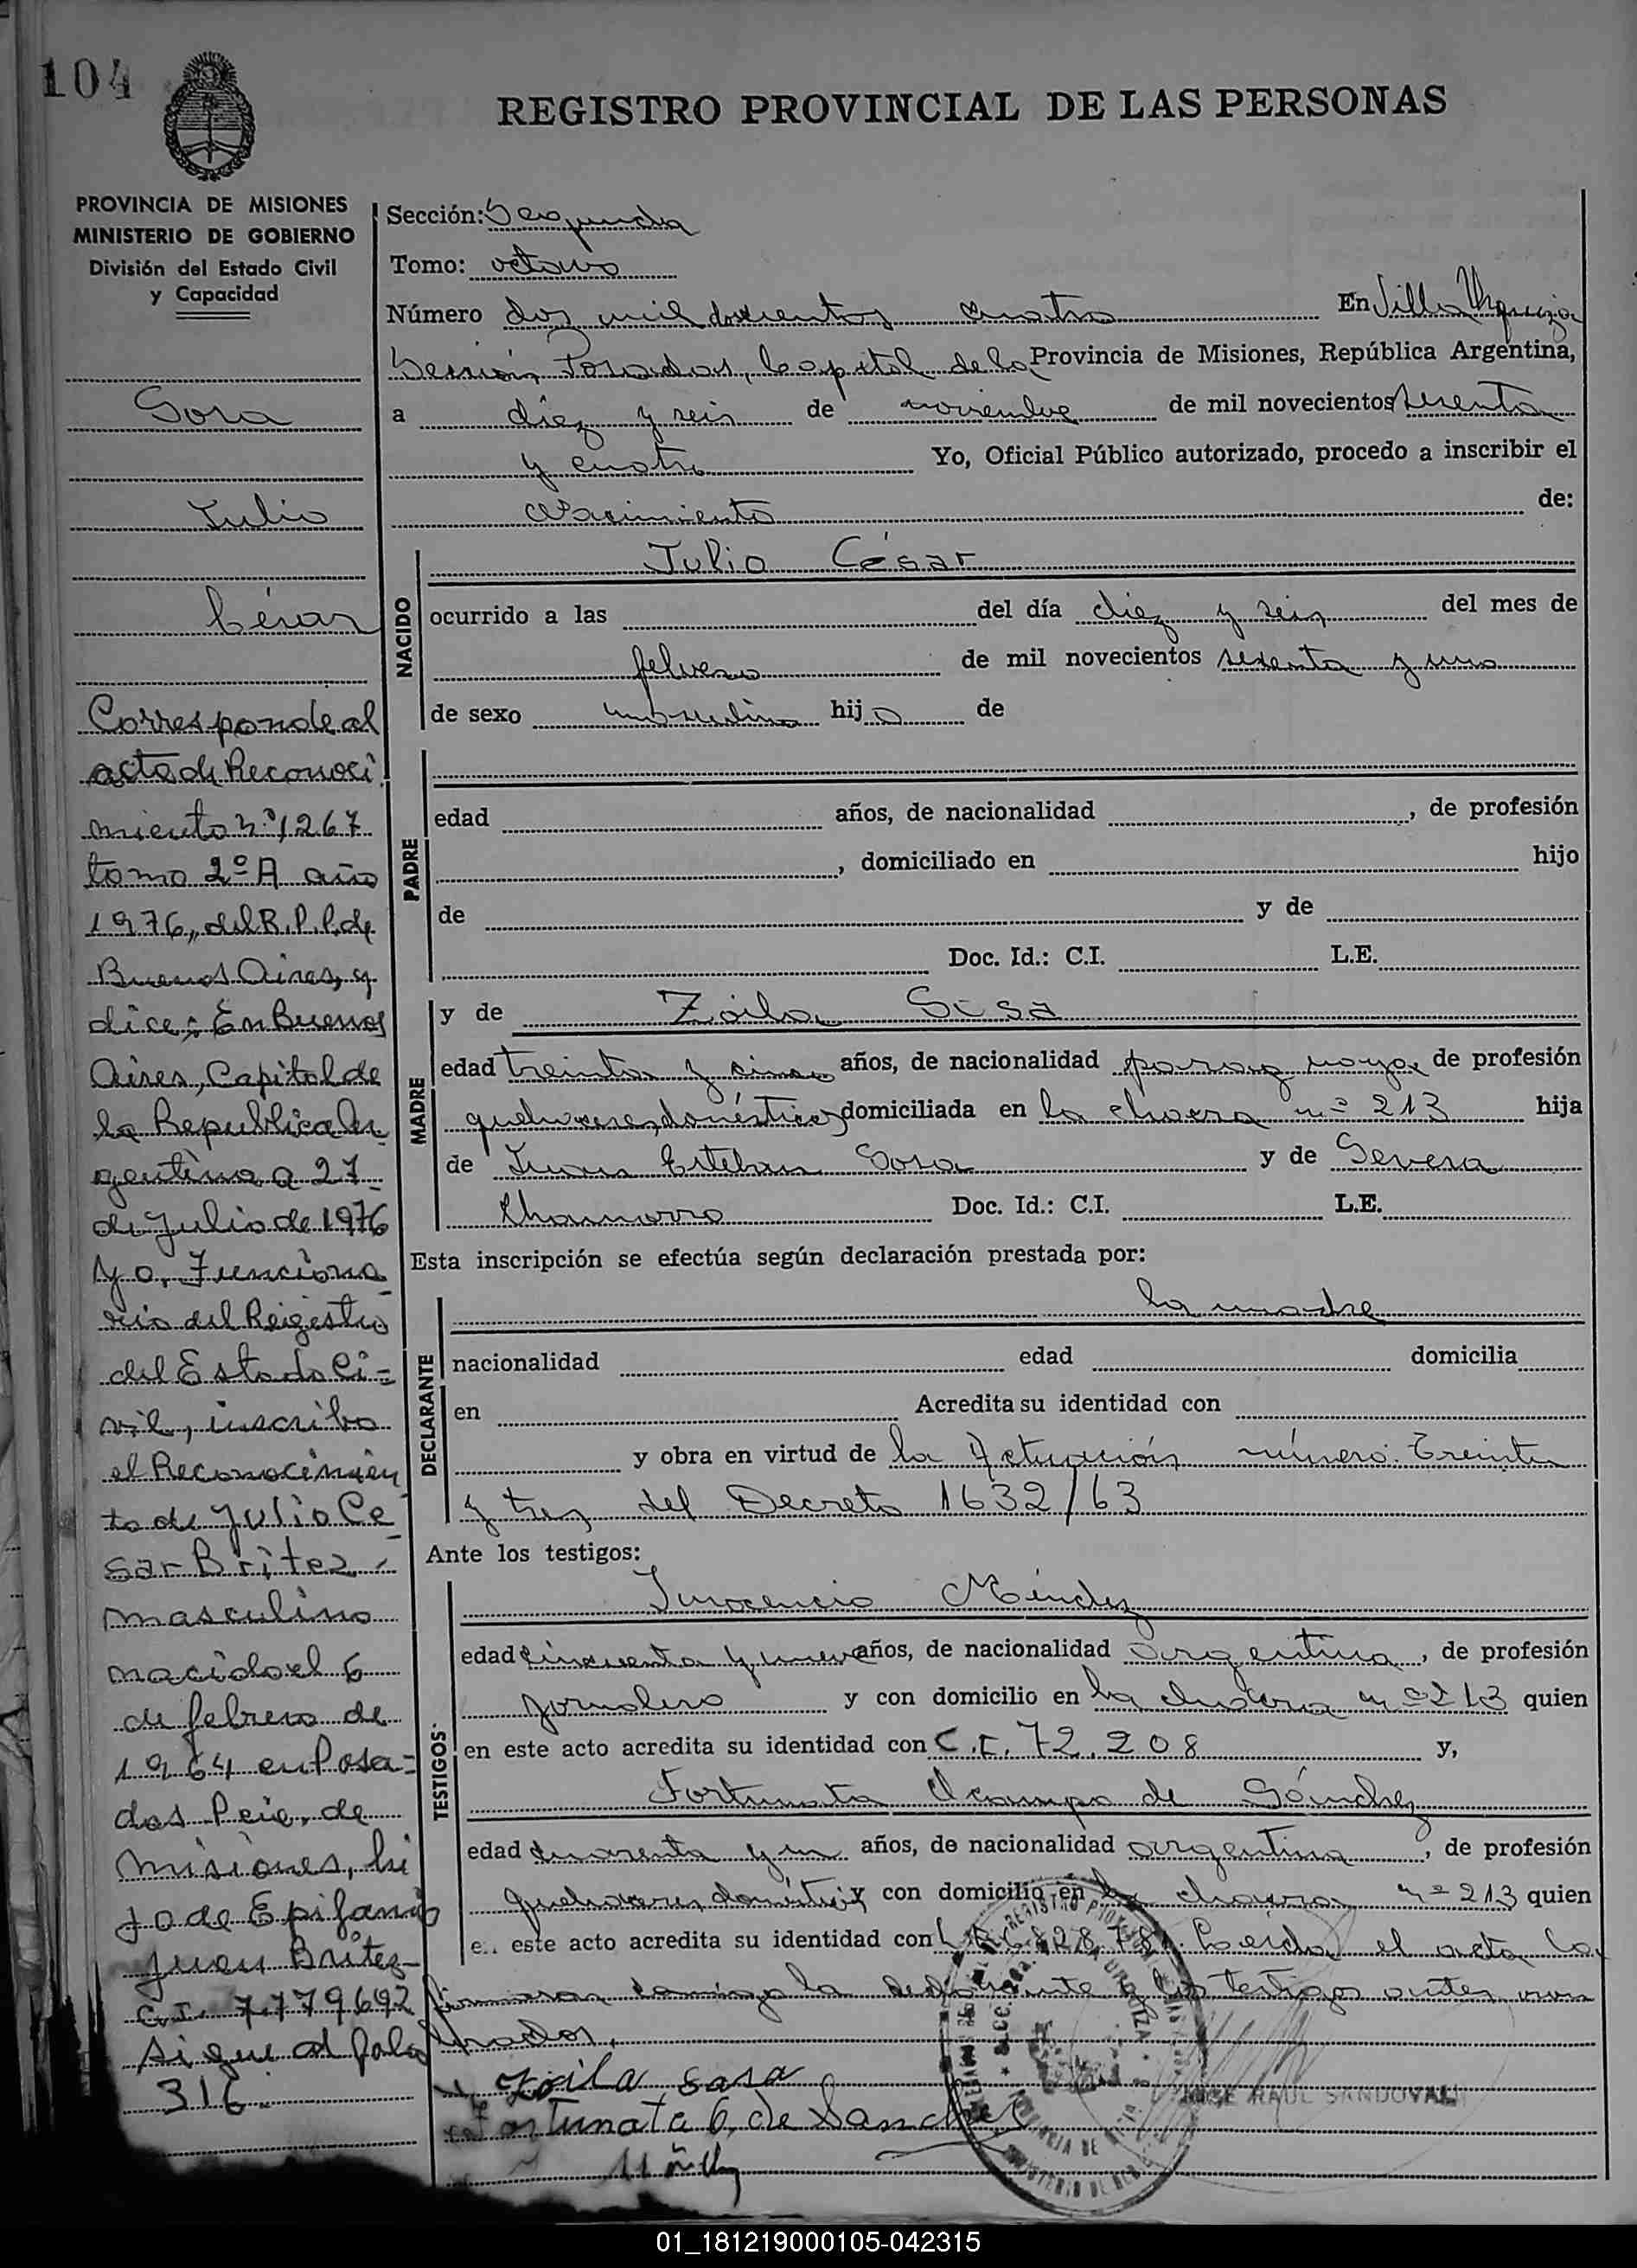 104
REGISTRO PROVINCIAL DE LAS PERSONAS
PROVINCIA DE MISIONES
MINISTERIO DE GOBIERNO
División del Estado Civil
y Capacidad
Sosa
Julio
César
Corresponde al
acta de Reconoci
miento nº 1267
tomo 2º A año
1976, del R.P.P. de
Buenos Aires, y
dice: En Buenos
Aires, Capital de
la Republica Ar
gentina a 27
de Julio de 1976
yo, Funciona
rio del Reigestro
del Estado Ci=
vil, inscribo
el Reconocimien
to de Julio Ce
sar Britez
masculino
nacido el 6
de febrero de
1964 en Posa=
das Pcia, de
Misiones, hi
jo de Epifanio
Juan Britez
C.I. 7.779692
sigue al folio
316.
Sección: Segunda
Tomo: octavo
Número dos mil doscientos cuatro En Villa Urquiza
Sección, Posadas, Capital de la Provincia de Misiones, República Argentina,
a diez y seis de noviembre de mil novecientos sesenta
y cuatro Yo, Oficial Público autorizado, procedo a inscribir el
Nacimiento de:
NACIDO
Julio César
ocurrido a las del día diez y seis del mes de
febrero de mil novecientos sesenta y uno
de sexo masculino hijo de
PADRE
edad años, de nacionalidad , de profesión
, domiciliado en hijo
de y de
Doc. Id.: C.I. L.E.
MADRE
y de Zoila Sosa
edad treinta y cinco años, de nacionalidad paraguaya, de profesión
quehaceres domésticos domiciliada en la chacra nº 213 hija
de Juan Esteban Sosa y de Severa
Chamorro Doc. Id.: C.I. L.E.
Esta inscripción se efectúa según declaración prestada por:
DECLARANTE
la madre
nacionalidad edad domicilia
en Acredita su identidad con
y obra en virtud de la Actuación número: Treinta
y tres del Decreto 1632/63
Ante los testigos:
TESTIGOS
Inocencio Méndez
edad cincuenta y nueve años, de nacionalidad argentina, de profesión
jornalero y con domicilio en la chacra nº 213 quien
en este acto acredita su identidad con C.I. 72.208 y,
Fortunata Ocampo de Sánchez
edad cuarenta y un años, de nacionalidad argentina, de profesión
quehaceres domésticos y con domicilio en la chacra nº 213 quien
en este acto acredita su identidad con Leída el acta la
firmaron conmigo la declarante y los testigos antes nom
brados.
Zoila sosa
Fortunata O. de Sanchez
JOSE RAUL SANDOVAL
01_181219000105-042315